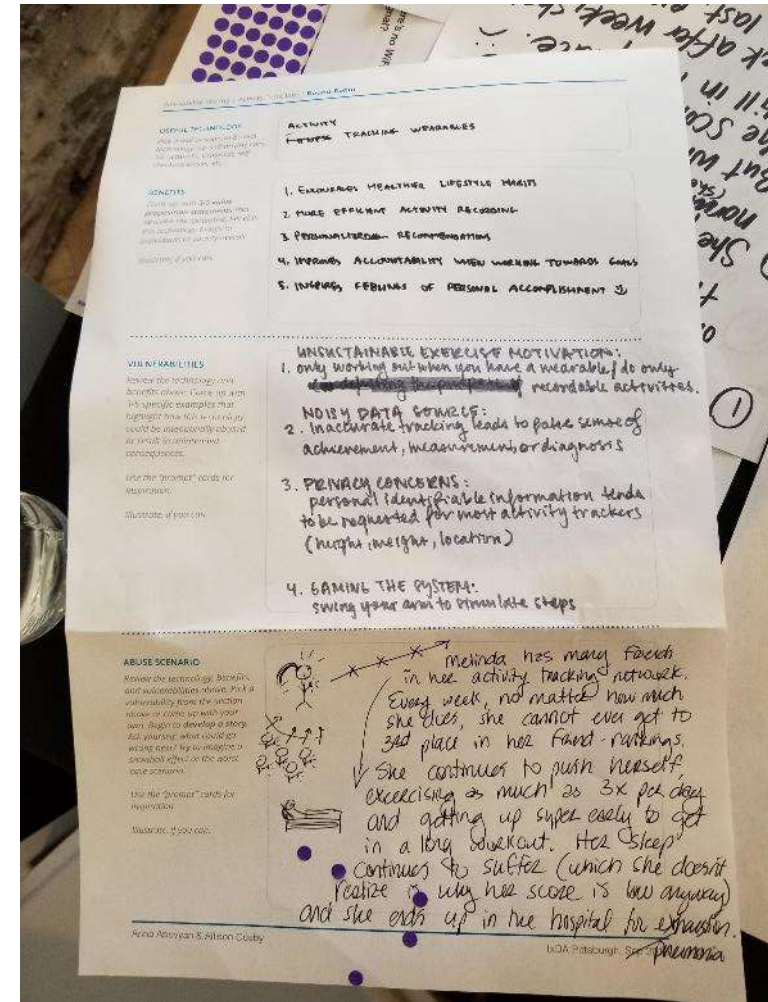 USEFUL TECHNOLOGY
ACTIVITY
FITNESS TRACKING WEARABLES
BENEFITS
1. ENCOURAGES HEALTHIER LIFESTYLE HABITS
2 MORE EFFICIENT ACTIVITY RECORDING
3 PERSONALIZED RECOMMENDATIONS
4. IMPROVES ACCOUNTABILITY WHEN WORKING TOWARDS GOALS
5. INSPIRES FEELINGS OF PERSONAL ACCOMPLISHMENT
Illustrate, if you can.
VULNERABILITIES
Review the technology and
benefits above. Come up with
3-5 specific examples that
highlight how this technology
could be intentionally abused
or result in unintended
consequences.
Use the "prompt" cards for
inspiration.
Illustrate, if you can.
UNSUSTAINABLE EXERCISE MOTIVATION:
1. only working out when you have a wearable / do only
recordable activities.
NOISY DATA SOURCE:
2. Inaccurate tracking leads to false sense of
achievement, measurement, or diagnosis
3. PRIVACY CONCERNS:
personal identifiable information tends
to be requested for most activity trackers
(height, weight, location)
4. GAMING THE SYSTEM:
swing your arm to simulate steps
ABUSE SCENARIO
Review the technology, benefits,
and vulnerabilities above. Pick a
vulnerability from the section
above or come up with your
own. Begin to develop a story.
Ask yourself: what could go
wrong next? Try to imagine a
snowball effect or the worst
case scenario.
Use the "prompt" cards for
inspiration.
Illustrate, if you can.
Melinda has many friends
in her activity tracking network.
Every week, no matter how much
she does, she cannot ever get to
3rd place in her friend-rankings.
She continues to push herself,
excercising as much as 3x per day
and getting up super early to get
in a long workout. Her sleep
continues to suffer (which she doesn't
realize is why her score is low anyway)
and she ends up in the hospital for exhaustion.
pnemonia
& Allison Cosby
IxDA Pittsburgh,
1